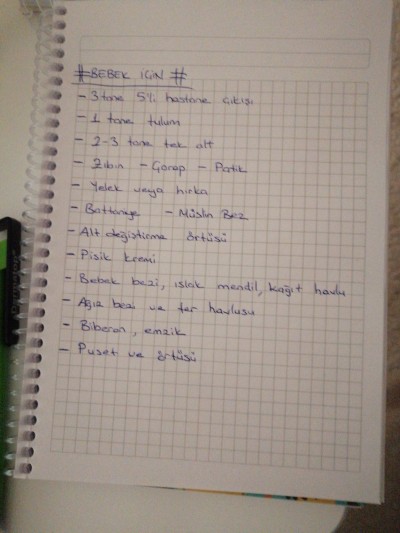 # BEBEK İÇİN #
- 3 tane 5'li hastane çıkışı
- 1 tane tulum
- 2-3 tane tek alt
- Zıbın - Çorap - Patik
- Yelek veya hırka
- Battaniye - Müslin Bez
- Alt değiştirme örtüsü
- Pişik kremi
- Bebek bezi, ıslak mendil, kağıt havlu
- Ağız bezi ve ter havlusu
- Biberon, emzik
- Puset ve örtüsü